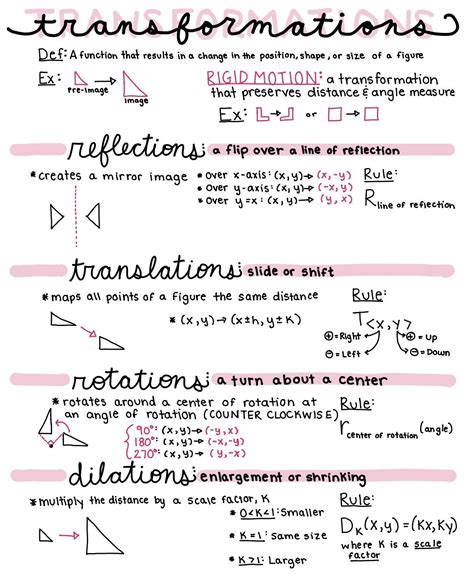 TRANSFORMATIONS
transformations
Def: A function that results in a change in the position, shape, or size of a figure
Ex:
Pre-image
Image
RIGID MOTION: a transformation
that preserves distance & angle measure
Ex:
or
reflections: a flip over a line of reflection
* creates a mirror image
* over x-axis: (x,y)→(x,-y)
* over y-axis: (x,y)→(-x,y)
* over y=x: (x,y)→(y,x)
Rule:
R line of reflection
translations: slide or shift
* maps all points of a figure the same distance
* (x,y)→(x±h, y±K)
Rule:
T<x,y>
⊕=Right
⊖=Left
⊕=Up
⊖=Down
rotations: a turn about a center
* rotates around a center of rotation at
an angle of rotation (COUNTER CLOCKWISE)
90°: (x,y)→(-y,x)
180°: (x,y)→(-x,-y)
270°: (x,y)→(y,-x)
Rule:
r center of rotation (angle)
dilations: enlargement or shrinking
* multiply the distance by a scale factor, K
* 0<K<1: Smaller
* K=1: Same size
* K>1: Larger
Rule:
D_K(x,y)=(Kx,Ky)
where K is a scale
factor